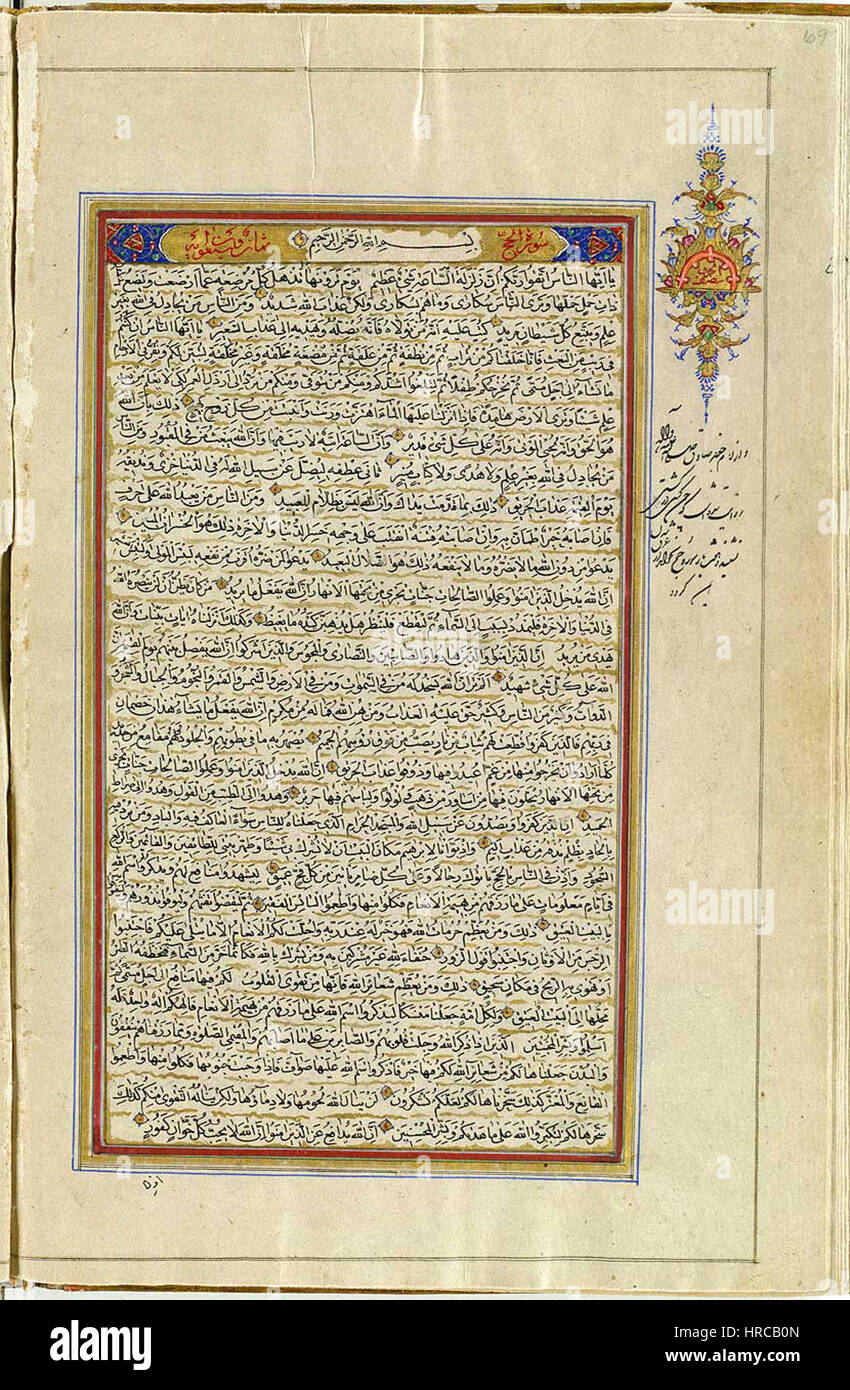 سورة الحج بسم الله الرحمن الرحيم ثمان وسبعون آية
يا ايها الناس اتقوا ربكم ان زلزلة الساعة شئ عظيم يوم ترونها تذهل كل مرضعة عما ارضعت وتضع كل
ذات حمل حملها وترى الناس سكارى وما هم بسكارى ولكن عذاب الله شديد ومن الناس من يجادل في الله بغير
علم ويتبع كل شيطان مريد كتب عليه انه من تولاه فانه يضله ويهديه الى عذاب السعير يا ايها الناس ان كنتم
في ريب من البعث فانا خلقناكم من تراب ثم من نطفة ثم من علقة ثم من مضغة مخلقة وغير مخلقة لنبين لكم ونقر في الارحام
ما نشاء الى اجل مسمى ثم نخرجكم طفلا ثم لتبلغوا اشدكم ومنكم من يتوفى ومنكم من يرد الى ارذل العمر لكيلا يعلم من بعد
علم شيئا وترى الارض هامدة فاذا انزلنا عليها الماء اهتزت وربت وانبتت من كل زوج بهيج ذلك بان الله
هو الحق وانه يحيي الموتى وانه على كل شئ قدير وان الساعة اتية لا ريب فيها وان الله يبعث من في القبور ومن الناس
من يجادل في الله بغير علم ولا هدى ولا كتاب منير ثاني عطفه ليضل عن سبيل الله له في الدنيا خزي ونذيقه
يوم القيمة عذاب الحريق ذلك بما قدمت يداك وان الله ليس بظلام للعبيد ومن الناس من يعبد الله على حرف
فان اصابه خير اطمان به وان اصابته فتنة انقلب على وجهه خسر الدنيا والاخرة ذلك هو الخسران المبين
يدعو من دون الله ما لا يضره وما لا ينفعه ذلك هو الضلال البعيد يدعو لمن ضره اقرب من نفعه لبئس المولى ولبئس العشير
ان الله يدخل الذين امنوا وعملوا الصالحات جنات تجري من تحتها الانهار ان الله يفعل ما يريد من كان يظن ان لن ينصره الله
في الدنيا والاخرة فليمدد بسبب الى السماء ثم ليقطع فلينظر هل يذهبن كيده ما يغيظ وكذلك انزلناه ايات بينات وان الله
يهدي من يريد ان الذين امنوا والذين هادوا والصابئين والنصارى والمجوس والذين اشركوا ان الله يفصل بينهم يوم القيمة ان
الله على كل شئ شهيد الم تر ان الله يسجد له من في السموات ومن في الارض والشمس والقمر والنجوم والجبال والشجر و
الدواب وكثير من الناس وكثير حق عليه العذاب ومن يهن الله فما له من مكرم ان الله يفعل ما يشاء هذان خصمان اختصموا
في ربهم فالذين كفروا قطعت لهم ثياب من نار يصب من فوق رؤسهم الحميم يصهر به ما في بطونهم والجلود ولهم مقامع من حديد
كلما ارادوا ان يخرجوا منها من غم اعيدوا فيها وذوقوا عذاب الحريق ان الله يدخل الذين امنوا وعملوا الصالحات جنات تجري
من تحتها الانهار يحلون فيها من اساور من ذهب ولؤلؤا ولباسهم فيها حرير وهدوا الى الطيب من القول وهدوا الى صراط
الحميد ان الذين كفروا ويصدون عن سبيل الله والمسجد الحرام الذي جعلناه للناس سواء العاكف فيه والباد ومن يرد فيه
بالحاد بظلم نذقه من عذاب اليم واذ بوانا لابرهيم مكان البيت ان لا تشرك بي شيئا وطهر بيتي للطائفين والقائمين والركع
السجود واذن في الناس بالحج ياتوك رجالا وعلى كل ضامر ياتين من كل فج عميق ليشهدوا منافع لهم ويذكروا اسم الله
في ايام معلومات على ما رزقهم من بهيمة الانعام فكلوا منها واطعموا البائس الفقير ثم ليقضوا تفثهم وليوفوا نذورهم وليطوفوا
بالبيت العتيق ذلك ومن يعظم حرمات الله فهو خير له عند ربه واحلت لكم الانعام الا ما يتلى عليكم فاجتنبوا
الرجس من الاوثان واجتنبوا قول الزور حنفاء لله غير مشركين به ومن يشرك بالله فكانما خر من السماء فتخطفه الطير
او تهوي به الريح في مكان سحيق ذلك ومن يعظم شعائر الله فانها من تقوى القلوب لكم فيها منافع الى اجل مسمى ثم
محلها الى البيت العتيق ولكل امة جعلنا منسكا ليذكروا اسم الله على ما رزقهم من بهيمة الانعام فالهكم اله واحد فله
اسلموا وبشر المخبتين الذين اذا ذكر الله وجلت قلوبهم والصابرين على ما اصابهم والمقيمي الصلوة ومما رزقناهم ينفقون
والبدن جعلناها لكم من شعائر الله لكم فيها خير فاذكروا اسم الله عليها صواف فاذا وجبت جنوبها فكلوا منها واطعموا
القانع والمعتر كذلك سخرناها لكم لعلكم تشكرون لن ينال الله لحومها ولا دماؤها ولكن يناله التقوى منكم كذلك
سخرها لكم لتكبروا الله على ما هديكم وبشر المحسنين ان الله يدافع عن الذين امنوا ان الله لا يحب كل خوان كفور
69
alamy
Image ID: HRCB0N
www.alamy.com